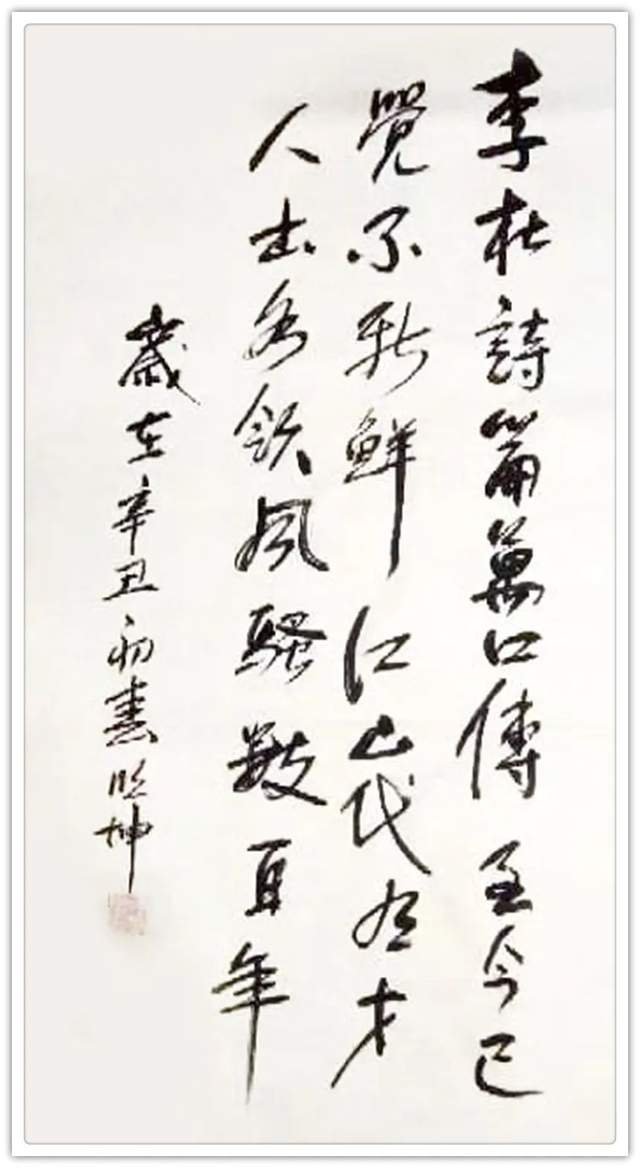 李杜詩篇萬口傳至今已
覺不新鮮江山代有才
人出各領風騷數百年
歲在辛丑初春坤